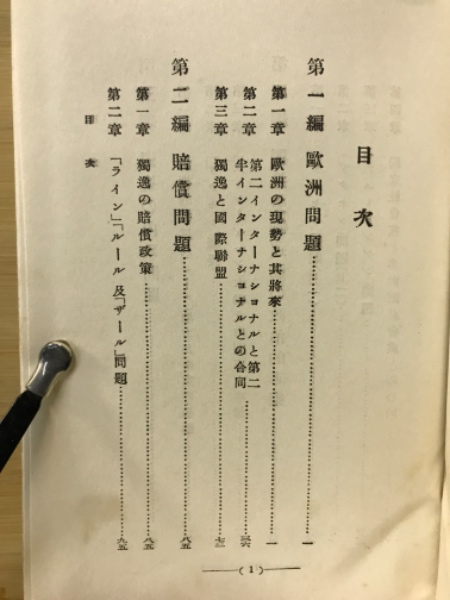 目次
第一編 歐洲問題 一
第一章 歐洲の現勢と其將來 一
第二章 第二インターナショナルと第二
半インターナショナルとの合同
第三章 獨逸と國際聯盟
第二編 賠償問題 八五
第一章 獨逸の賠償政策 八五
第二章 「ライン」「ルール」及「ザール」問題 九五
目次
(1)